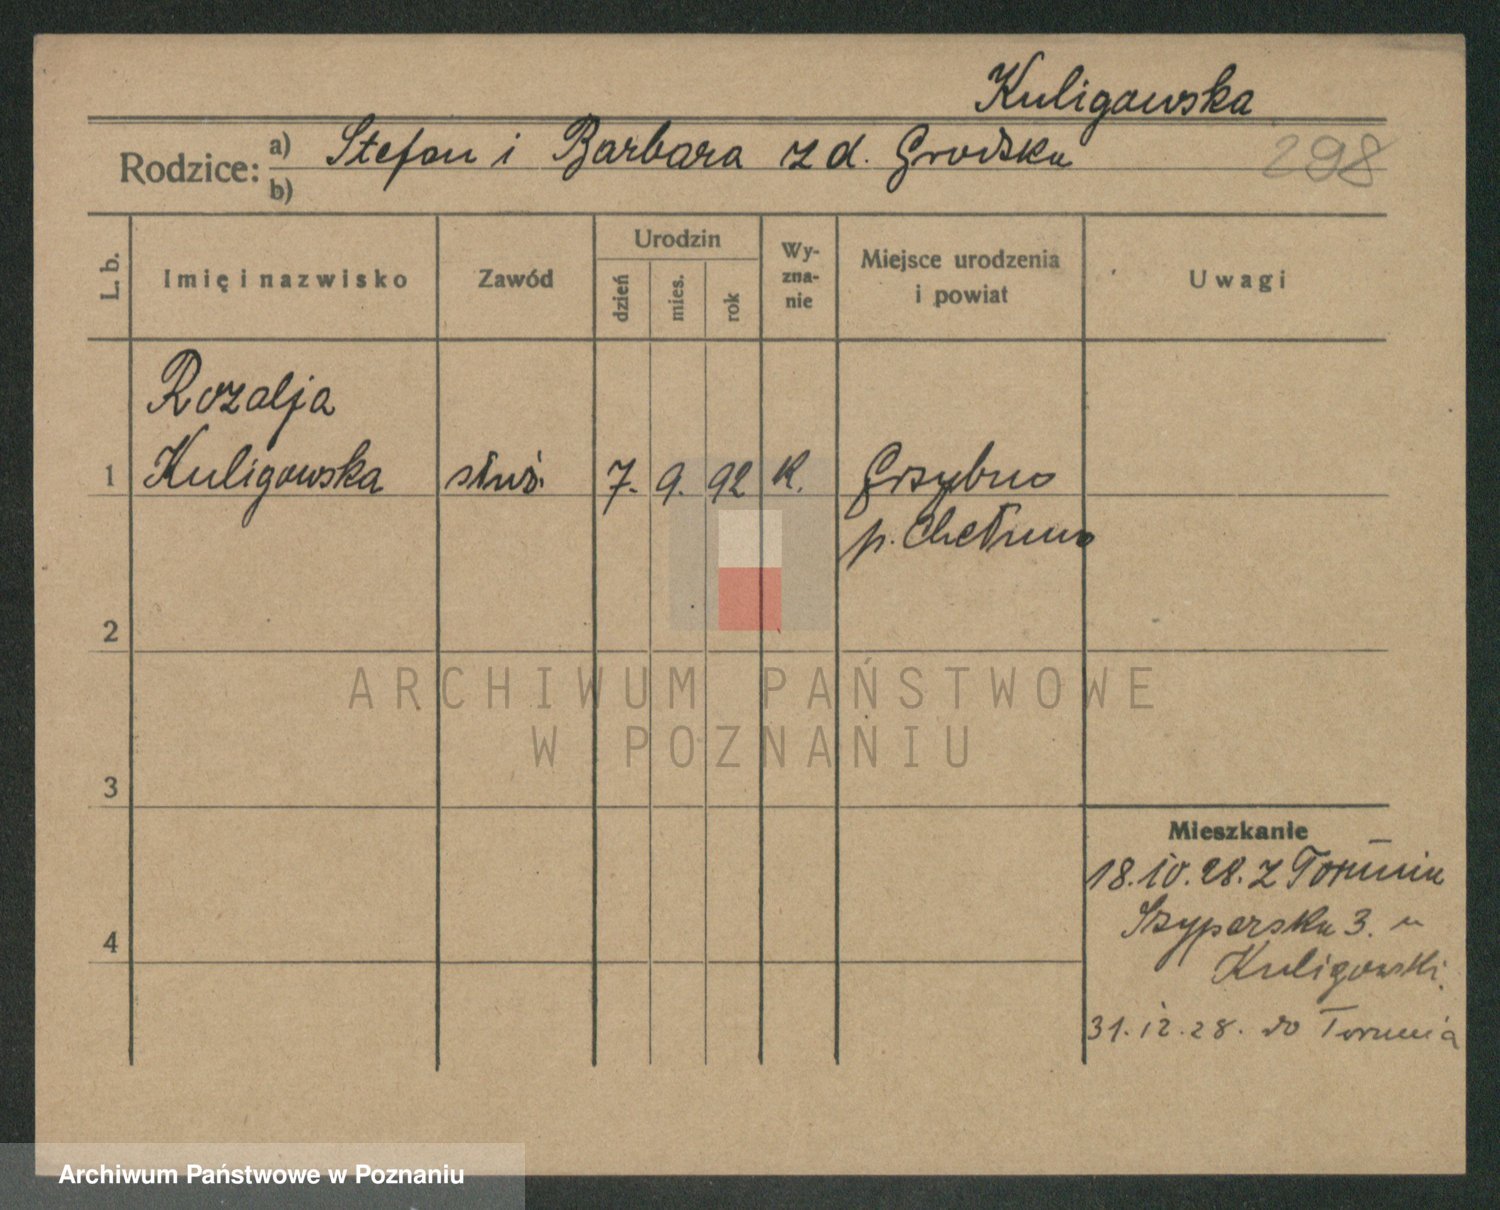 Kuligowska
298
Rodzice: a) Stefan i Barbara z d. Grodzka
b)
L. b. Imię i nazwisko Zawód Urodzin dzień mies. rok Wyzna-nie Miejsce urodzenia i powiat Uwagi
Rozalja
1 Kuligowska służ. 7. 9. 92 K. Grzybno
p. Chełmno
2
3
4
Mieszkanie
18.10.28. z Torunia
Szyperska 3. u
Kuligowski.
31.12.28. do Torunia
ARCHIWUM PAŃSTWOWE
W POZNANIU
Archiwum Państwowe w Poznaniu